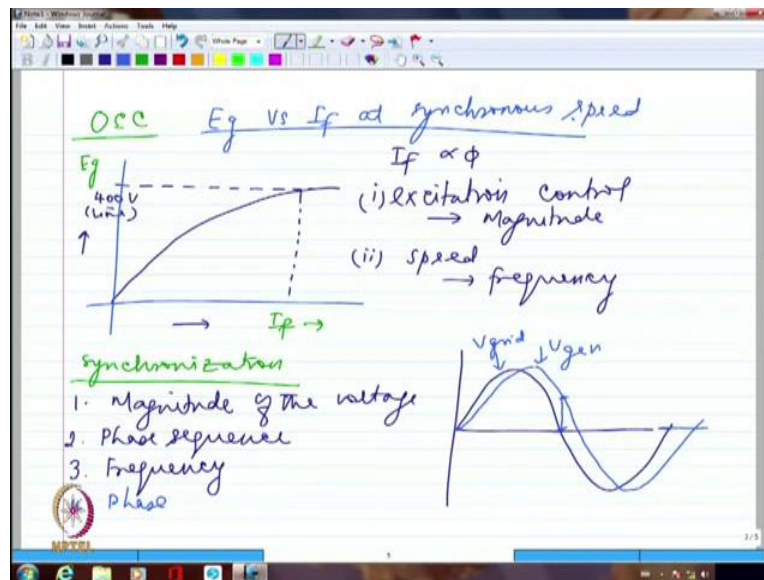 Note1 - Windows Journal
File Edit View Insert Actions Tools Help
Whole Page
B I
OCC Eg vs If at synchronous speed
Eg
400 V
(Line)
↑
→ If →
If ∝ φ
(i) excitation control
→ Magnitude
(ii) speed
→ frequency
Synchronization
1. Magnitude of the voltage
2. Phase sequence
3. Frequency
Phase
Vgrid Vgen
NPTEL
3/5